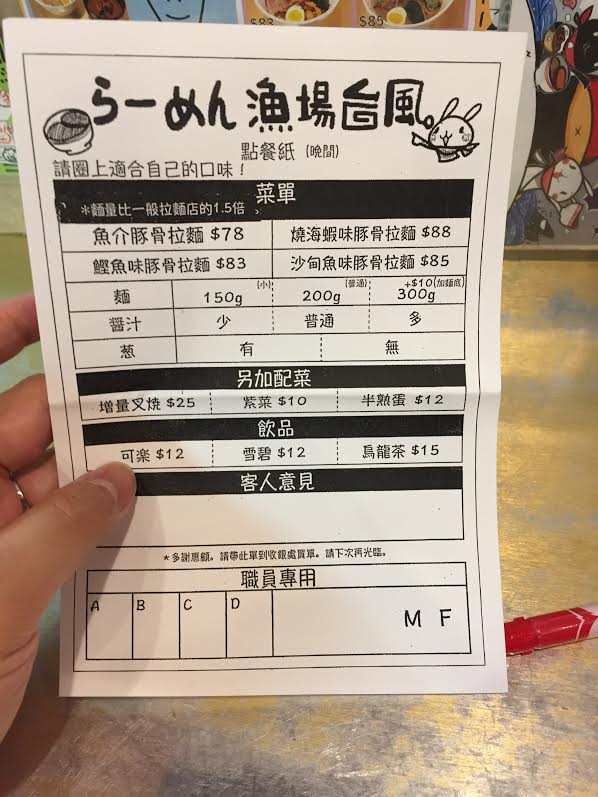 $83
$85
らーめん 漁場台風。
點餐紙 (晩間)
請圈上適合自己的口味！
菜單
*麵量比一般拉麵店的1.5倍
魚介豚骨拉麵 $78 燒海蝦味豚骨拉麵 $88
鰹魚味豚骨拉麵 $83 沙甸魚味豚骨拉麵 $85
麵 150g (小) 200g (普通) 300g +$10(加麵底)
醬汁 少 普通 多
葱 有 無
另加配菜
增量叉燒 $25 紫菜 $10 半熟蛋 $12
飲品
可楽 $12 雪碧 $12 烏龍茶 $15
客人意見
*多謝惠顧。請帶此單到收銀處買單。請下次再光臨。
職員專用
A B C D M F